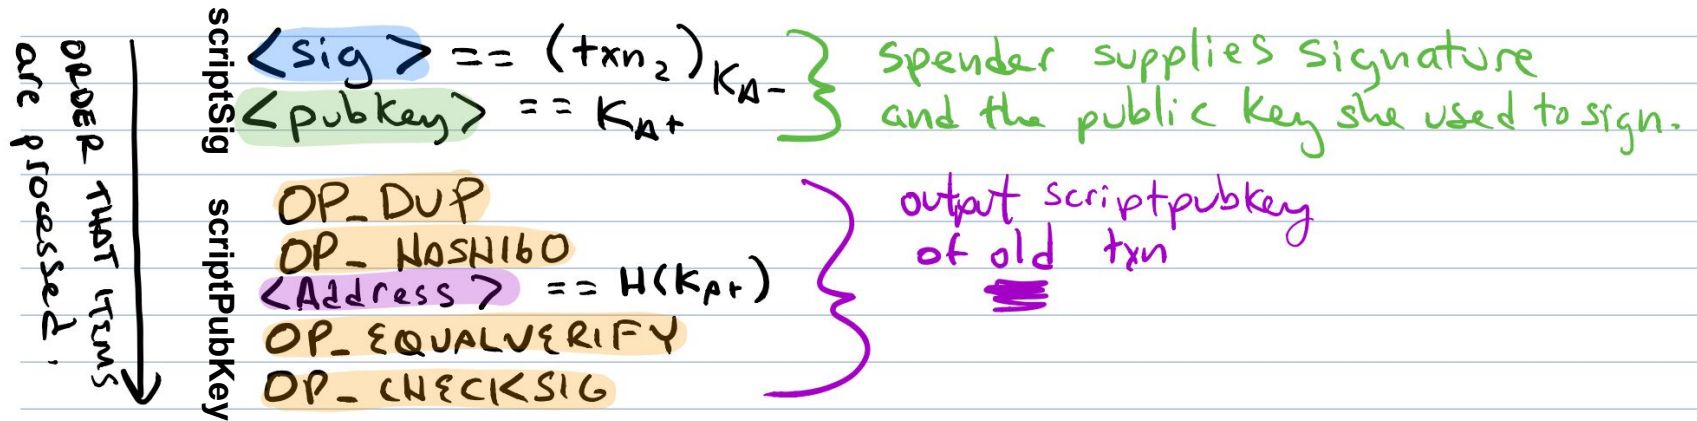 ORDER THAT ITEMS
are processed.
scriptSig
<sig> == (txn₂)K_A-
<pubkey> == K_A+
spender supplies signature
and the public key she used to sign.
scriptPubKey
OP_DUP
OP_HASH160
<Address> == H(K_A+)
OP_EQUALVERIFY
OP_CHECKSIG
output scriptpubkey
of old txn